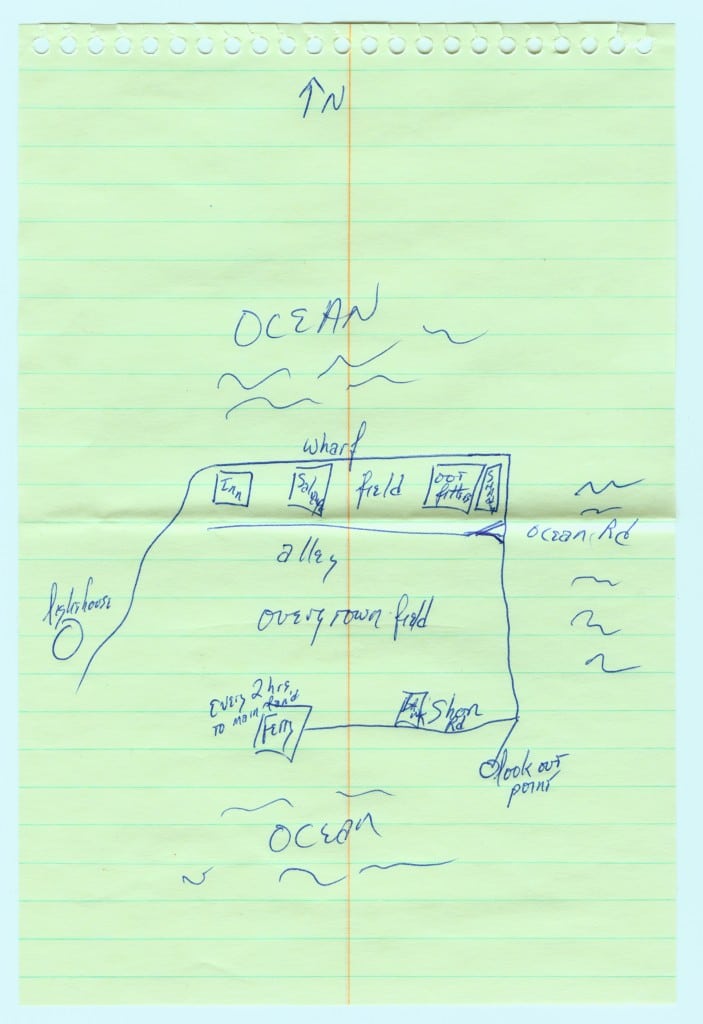 ↑N
OCEAN
wharf
Inn
Saloon
field
out
fitters
alley
Ocean Rd
lighthouse
overgrown field
Every 2 hrs.
to main land
Ferry
Shore
Rd
look out
point
OCEAN